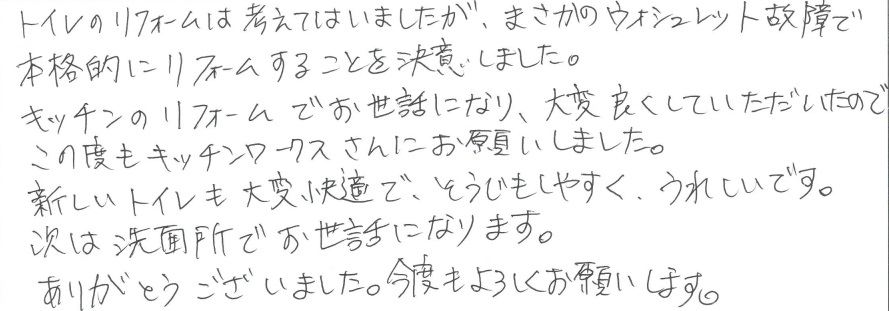 トイレのリフォームは考えてはいましたが、まさかのウォシュレット故障で
本格的にリフォームすることを決意しました。
キッチンのリフォームでお世話になり、大変良くしていただいたので
この度もキッチンワークスさんにお願いしました。
新しいトイレも大変快適で、そうじもしやすく、うれしいです。
次は洗面所でお世話になります。
ありがとうございました。今度もよろしくお願いします。